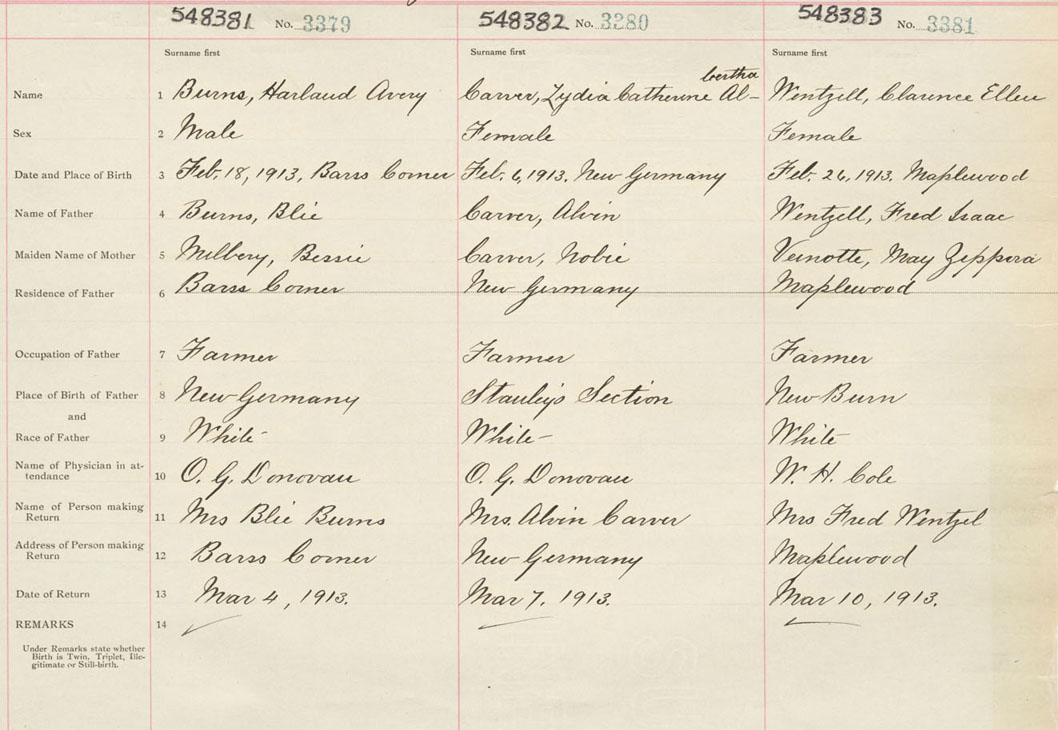 548381 No. 3379 548382 No. 3380 548383 No. 3381
Surname first Surname first Surname first
bertha
Name 1 Burns, Harland Avery Carver, Lydia Catherine Al- Wentzell, Clarence Ellen
Sex 2 Male Female Female
Date and Place of Birth 3 Feb. 18, 1913, Barss Corner Feb. 6, 1913. New Germany Feb. 26, 1913. Maplewood
Name of Father 4 Burns, Blie Carver, Alvin Wentzell, Fred Isaac
Maiden Name of Mother 5 Milbery, Bessie Carver, Nobie Veinotte, May Zeppora
Residence of Father 6 Barss Corner New Germany Maplewood
Occupation of Father 7 Farmer Farmer Farmer
Place of Birth of Father 8 New Germany Stanley's Section New Burn
and
Race of Father 9 White White White
Name of Physician in at-
tendance 10 O. G. Donovan O. G. Donovan W. H. Cole
Name of Person making
Return 11 Mrs Blie Burns Mrs. Alvin Carver Mrs Fred Wentzel
Address of Person making
Return 12 Barss Corner New Germany Maplewood
Date of Return 13 Mar 4, 1913. Mar 7, 1913. Mar 10, 1913.
REMARKS 14
Under Remarks state whether
Birth is Twin, Triplet, Ille-
gitimate or Still-birth.